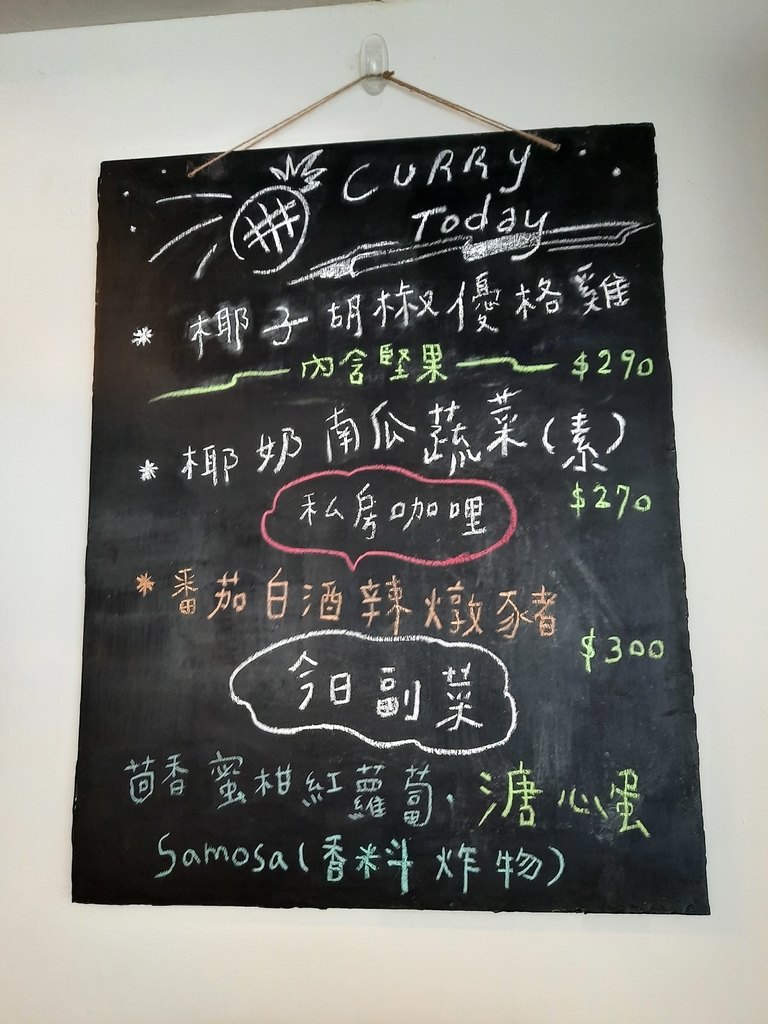 CURRY
Today
* 椰子胡椒優格雞
內含堅果 $290
* 椰奶南瓜蔬菜(素)
$270
私房咖哩
* 番茄白酒辣燉豬
$300
今日副菜
茴香蜜柑紅蘿蔔.溏心蛋
Samosa(香料炸物)